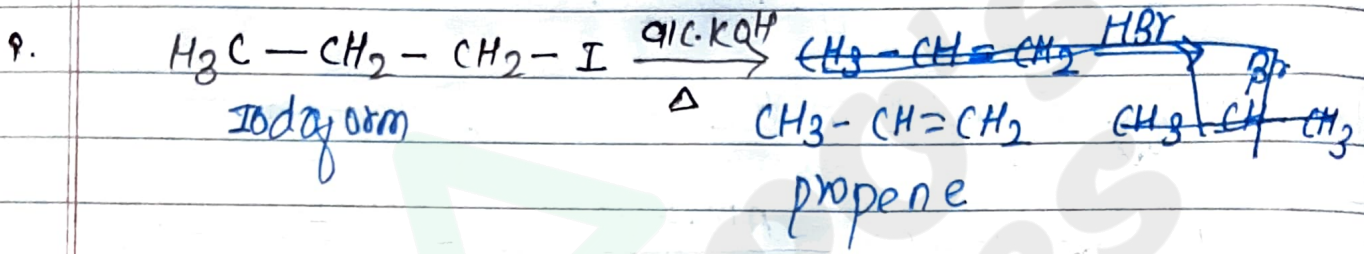 9. H3C – CH2 – CH2 – I alc. KOH → Δ CH3 – CH = CH2 HBr → Br
Iodoform CH3 – CH = CH2 CH3 CH CH3
propene